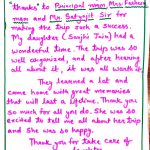 "Thanks" to Principal mam Mrs. Farheen
mam and Mr. Satyajit Sir for
making the trip such a success.
My daughter (Sanjhi Jain) had a
wonderful time. The trip was so
well organized, and after hearing
all about it, it was all worth it.
They learned a lot and
come home with great memories
that will last a lifetime. Thank you
so much for all you do. She was so
excited to tell me all about her trip
and She was so happy.
Thank you for take care of